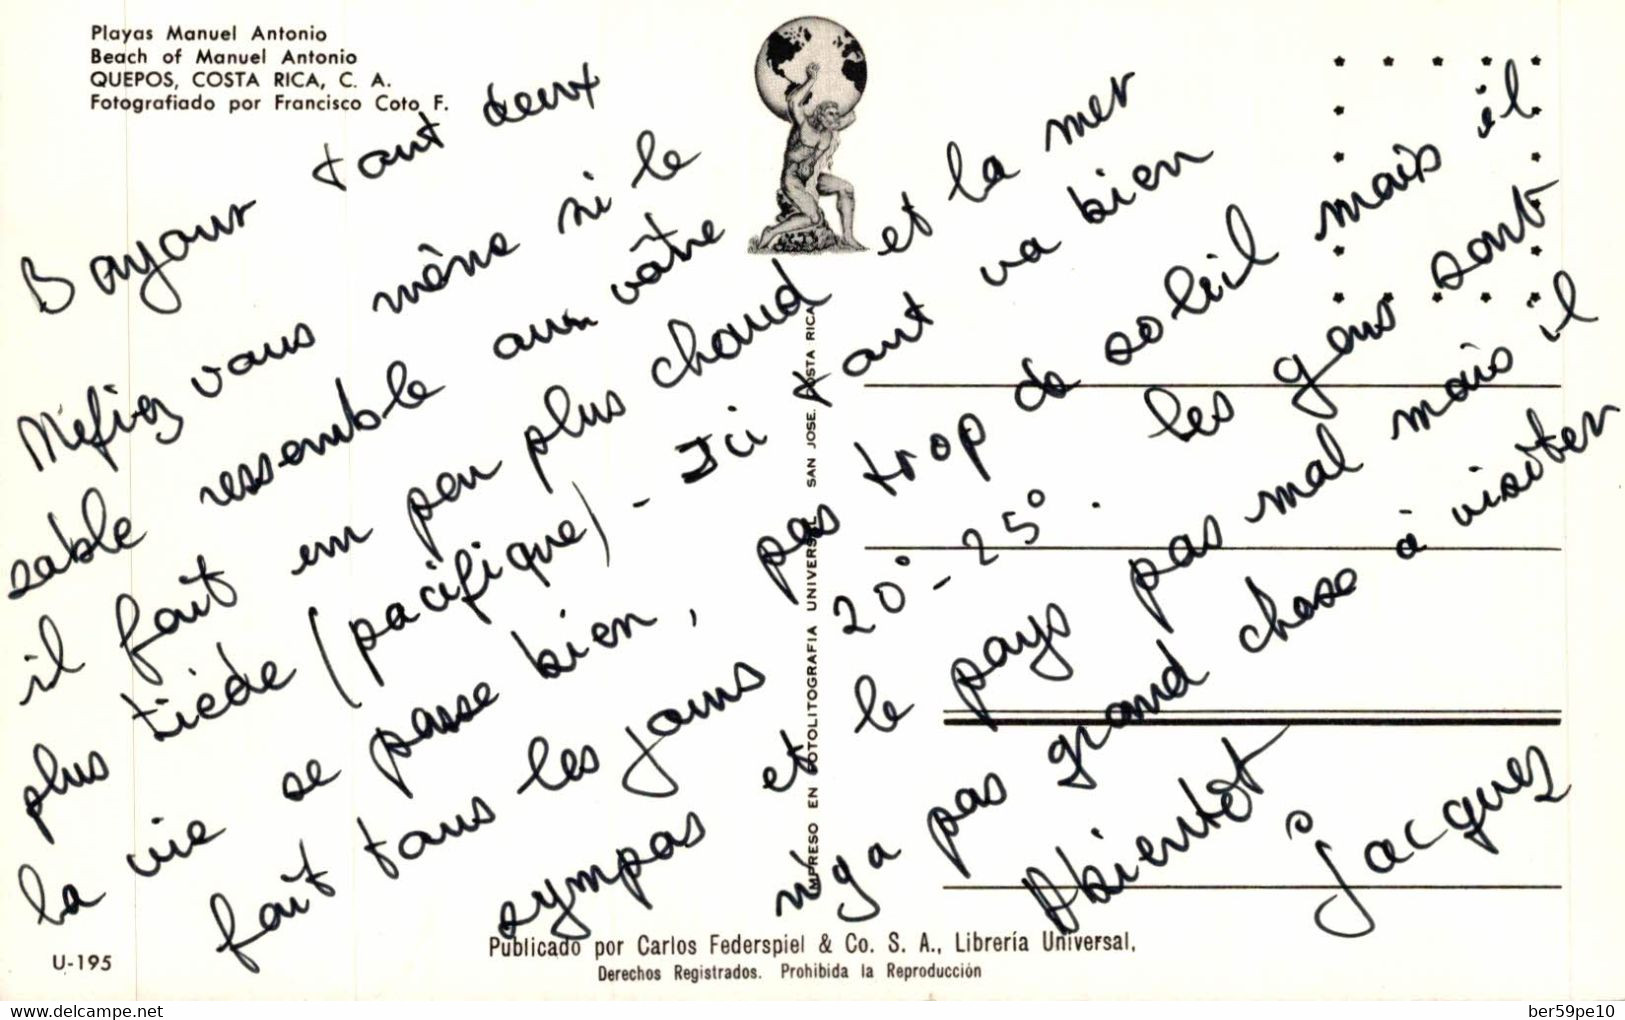 Playas Manuel Antonio
Beach of Manuel Antonio
QUEPOS, COSTA RICA, C. A.
Fotografiado por Francisco Coto F.
Bonjour tout deux
Méfiez vous même si le
sable ressemble aux vôtre et la mer
il fait un peu plus chaud
plus tiède (pacifique) - Ici tout va bien
la vie se passe bien, pas trop de soleil mais il
fait tous les jours 20° - 25°. les gens sont
sympas et le pays pas mal mais il
n'y a pas grand chose à visiter
A bientôt
Jacques
IMPRESO EN FOTOLITOGRAFIA UNIVERSAL SAN JOSE. COSTA RICA
U-195
Publicado por Carlos Federspiel & Co. S. A., Librería Universal,
Derechos Registrados. Prohibida la Reproducción
www.delcampe.net
ber59pe10